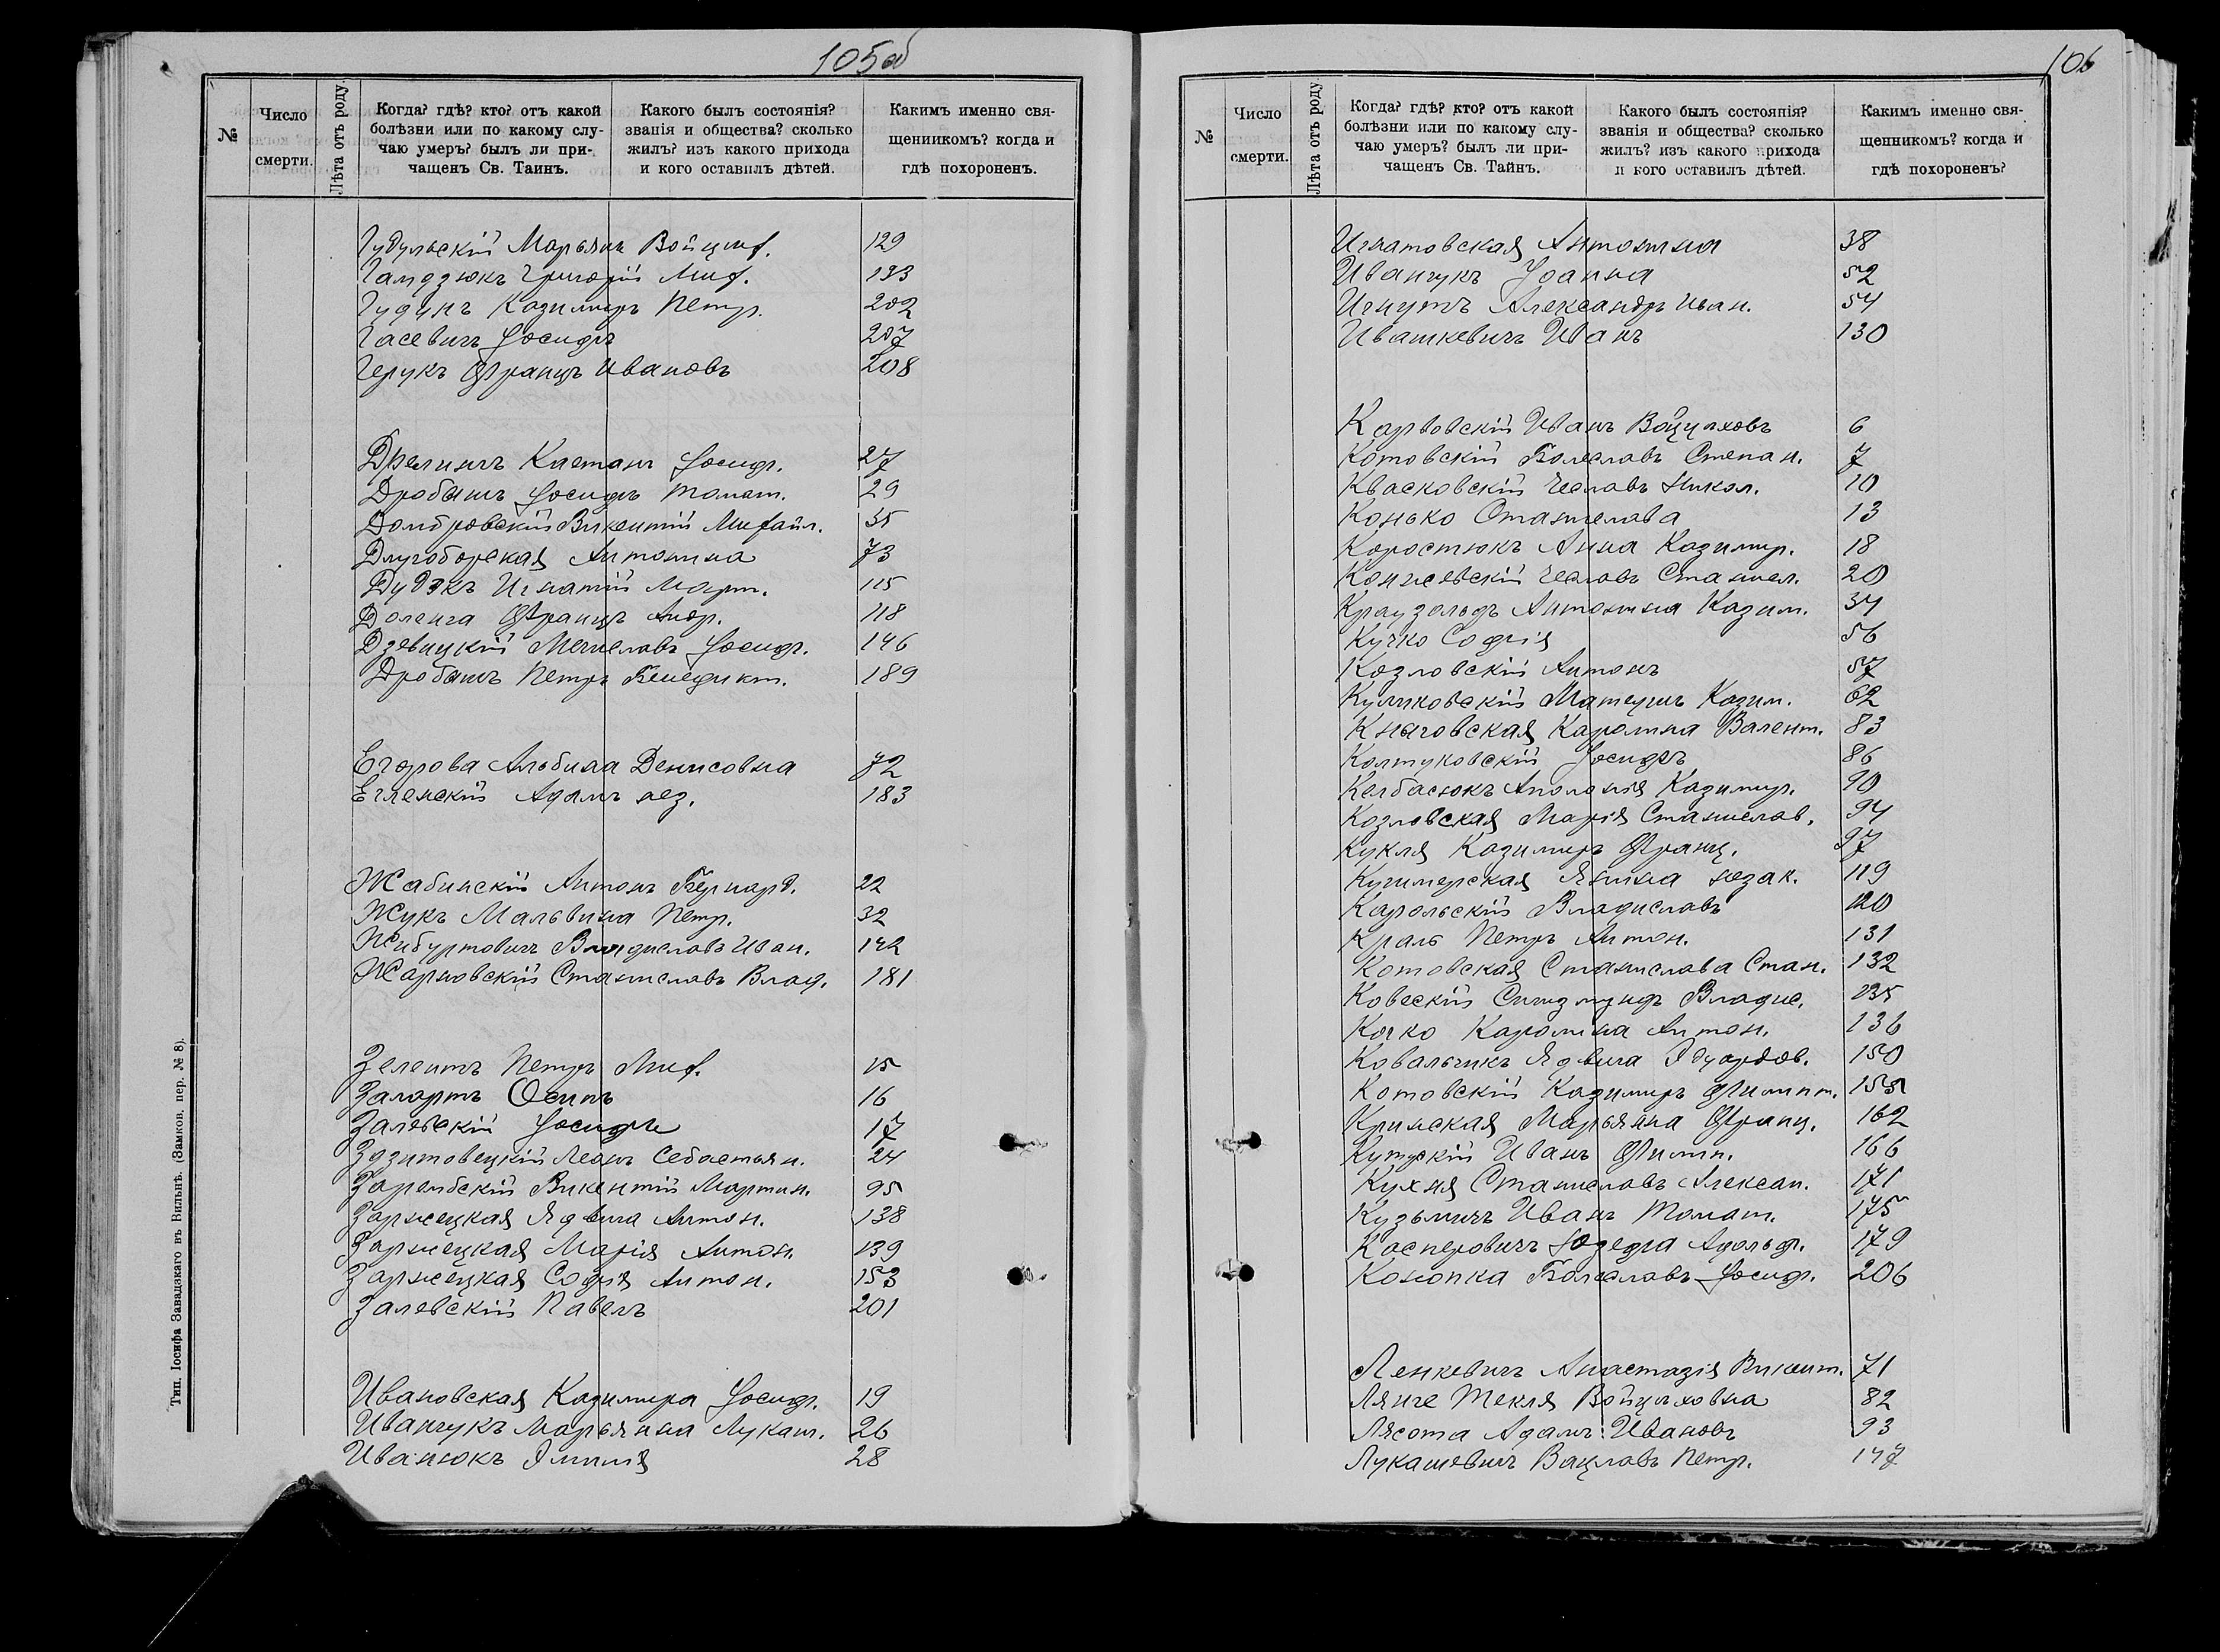 105об
№
Число смерти.
Лѣта отъ роду.
Когда? гдѣ? кто? отъ какой болѣзни или по какому случаю умеръ? былъ ли причащенъ Св. Таинъ.
Какого былъ состоянія? званія и общества? сколько жилъ? изъ какого прихода и кого оставилъ дѣтей.
Какимъ именно священникомъ? когда и гдѣ похороненъ.
Гудульскій Марьянъ Войцѣх. 129
Гамдзюкъ Григорій Мих. 193
Гудинъ Казимиръ Петр. 202
Гасевичъ Іосифъ 207
Герукъ Францъ Ивановъ 208
Дрелингъ Каетанъ Іосиф. 27
Дробашъ Іосифъ Томаш. 29
Домбровскій Викентій Михаил. 35
Длугоборская Антонина 73
Дудэкъ Игнатій Март. 115
Доленга Францъ Андр. 118
Дзевицкій Мечиславъ Іосиф. 146
Дробашъ Петръ Бенедикт. 189
Егорова Альбина Денисовна 72
Егленскій Адамъ нез. 183
Жабинскій Антонъ Бернард. 22
Жукъ Мальвина Петр. 32
Жибуртовичъ Владиславъ Иван. 142
Жарновскій Станиславъ Влад. 181
Зелентъ Петръ Мих. 15
Залартъ Осипъ 16
Залевскій Іосифъ 17
Здзитовецкій Леонъ Себастьян. 24
Зарембскій Викентій Мартин. 95
Заржецкая Ядвига Антон. 138
Заржецкая Марія Антон. 139
Заржецкая Софія Антон. 153
Залевскій Павелъ 201
Ивановская Казимира Іосиф. 19
Иванчукъ Марьянна Лукаш. 26
Иванюкъ Эмилія 28
Тип. Іосифа Завадзкаго въ Вильнѣ. (Замков. пер. № 8).
106
№
Число смерти.
Лѣта отъ роду
Когда? гдѣ? кто? отъ какой болѣзни или по какому случаю умеръ? былъ ли причащенъ Св. Тайнъ.
Какого былъ состоянія? званія и общества? сколько жилъ? изъ какого прихода и кого оставилъ дѣтей.
Какимъ именно священникомъ? когда и гдѣ похороненъ?
Игнатовская Антонина 38
Иванчукъ Іоанна 52
Игнутъ Александръ Иван. 54
Ивашкевичъ Иванъ 130
Карвовскій Иванъ Войцѣховъ 6
Котовскій Болеславъ Степан. 7
Квасковскій Чеславъ Никол. 10
Конько Станислава 13
Коростюкъ Анна Казимир. 18
Кописевскій Чеславъ Станисл. 20
Краузольдъ Антонина Казим. 34
Кучко Софія 56
Козловскій Антонъ 57
Куликовскій Матеушъ Казим. 62
Снаговская Каролина Валент. 83
Колтуковскій Іосифъ 86
Колбасюкъ Аполонія Казимир. 90
Козловская Марія Станислав. 94
Кукля Казимиръ Франц. 97
Кучимерская Янина незак. 119
Карольскій Владиславъ 120
Краль Петръ Антон. 131
Котовская Станислава Стан. 132
Ковескій Сигизмундъ Владис. 135
Кочко Каролина Антон. 136
Ковальчикъ Ядвига Эдуардов. 150
Котовскій Казимиръ Филипп. 155
Кринская Марьянна Франц. 162
Кутускій Иванъ Филип. 166
Кухня Станиславъ Алексан. 171
Кузьмичъ Иванъ Томаш. 175
Касперовичъ Юзефа Адольф. 179
Конопка Болеславъ Іосиф. 206
Ленкевичъ Анастазія Викент. 71
Лянге Текля Войцѣховна 82
Лясота Адамъ Ивановъ 93
Лукашевичъ Вацлавъ Петр. 147